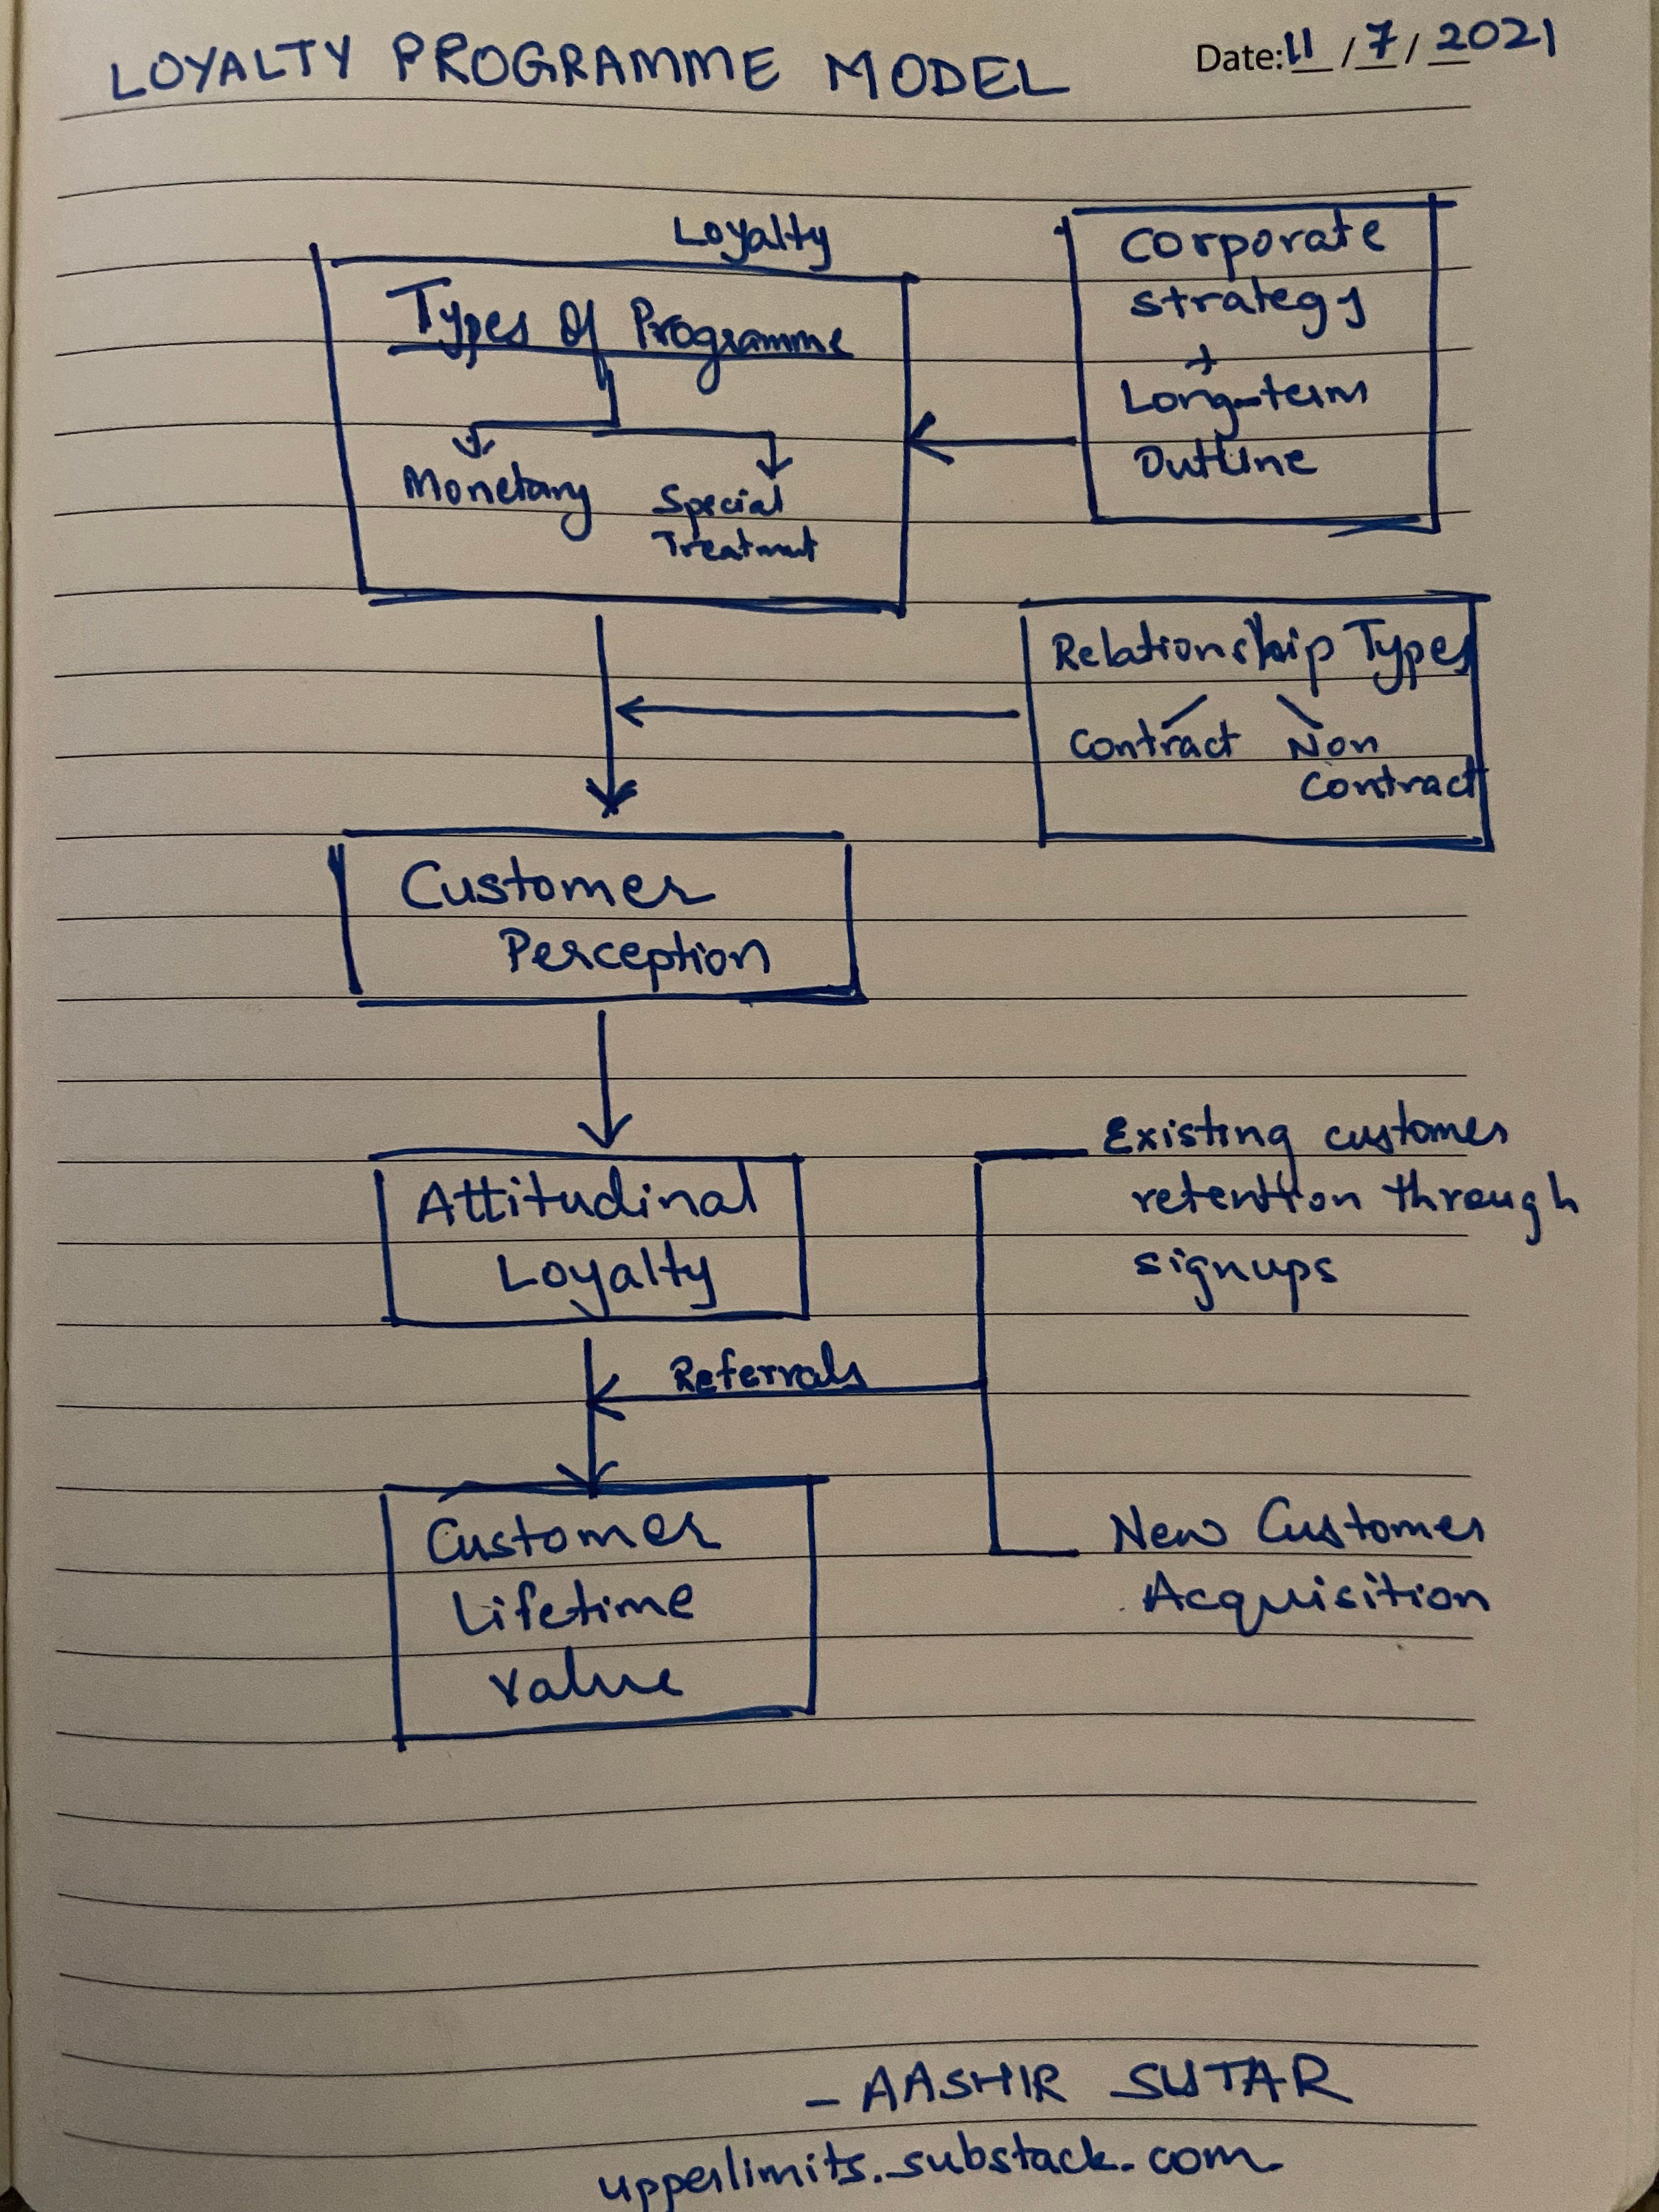 LOYALTY PROGRAMME MODEL
Date: 11/7/2021
Loyalty
Types Of Programme
Monetary
Special
Treatment
Corporate
strategy
+
Long-term
Outline
Relationship Types
Contract
Non
Contract
Customer
Perception
Attitudinal
Loyalty
Existing customer
retention through
signups
Referrals
Customer
Lifetime
Value
New Customer
Acquisition
- AASHIR SUTAR
upperlimits.substack.com